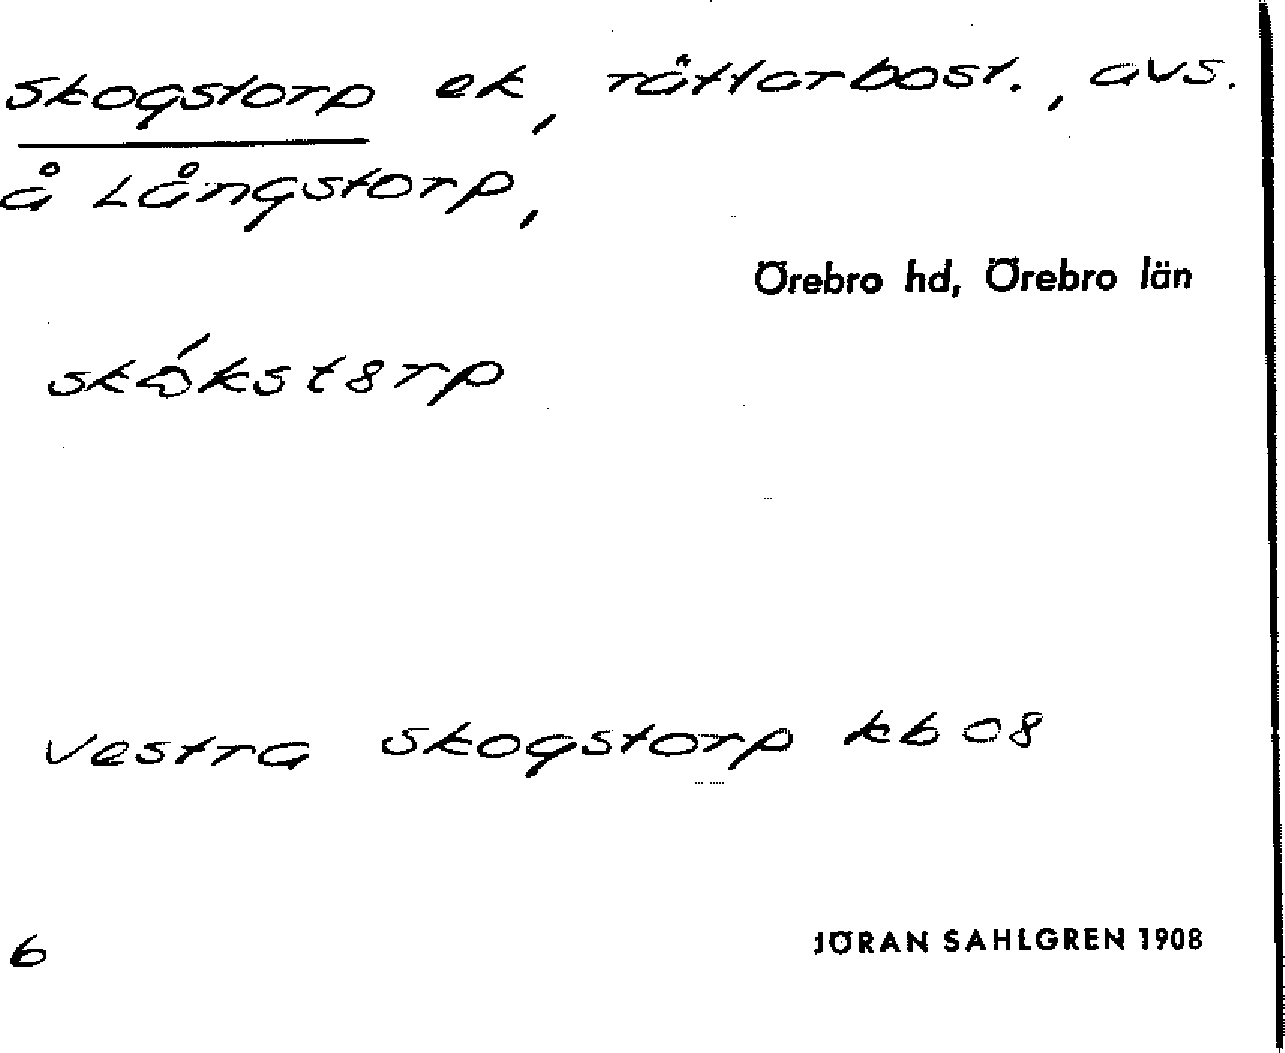 Skogstorp ek, rättarbost., avs.
å Långstorp,
Örebro hd, Örebro län
Vestra Skogstorp kb 08
6
JÖRAN SAHLGREN 1908